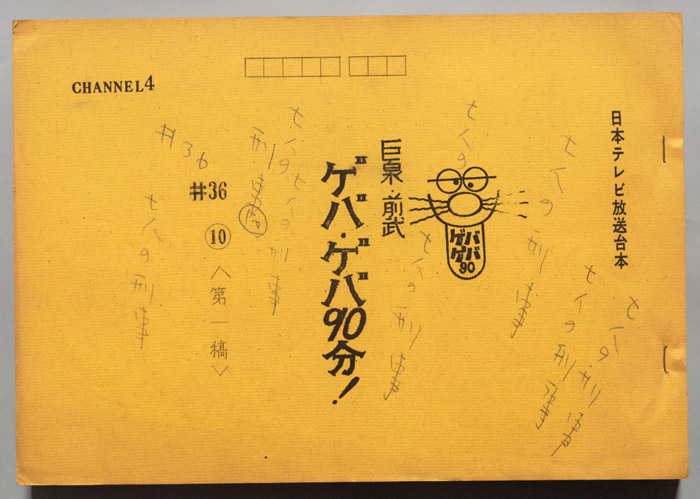 CHANNEL4
日本テレビ放送台本
ゲバ
ゲバ
90
巨泉・前武
ゲバ・ゲバ90分!
#36
⑩
〈第一稿〉
七人の刑事
七人の刑事
七人の刑事
七人の
七人の刑事
七人の
七人の刑事
刑事
#36
七人の刑事